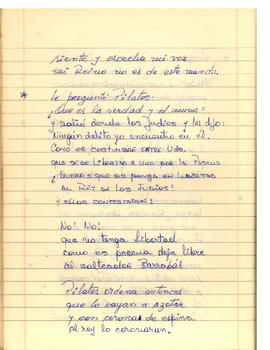 siente y escucha mi voz
mi Reino no es de este mundo.
* Le preguntó Pilatos:
¿Que es la verdad y el amor?
y salió donde los Judíos y les dijo:
Ningún delito yo encuentro en él.
Como es costumbre entre Uds.
que se de libertad a uno por la Pascua
¿Quereis que os ponga en libertad
al REY de los Judios?
y ellos contestaron:
No! No!
que no tenga libertad
como es pascua deja libre
al salteador Barrabás.
Pilatos ordena entonces
que lo vayan a azotar
y con corona de espina
al rey lo coronaran.